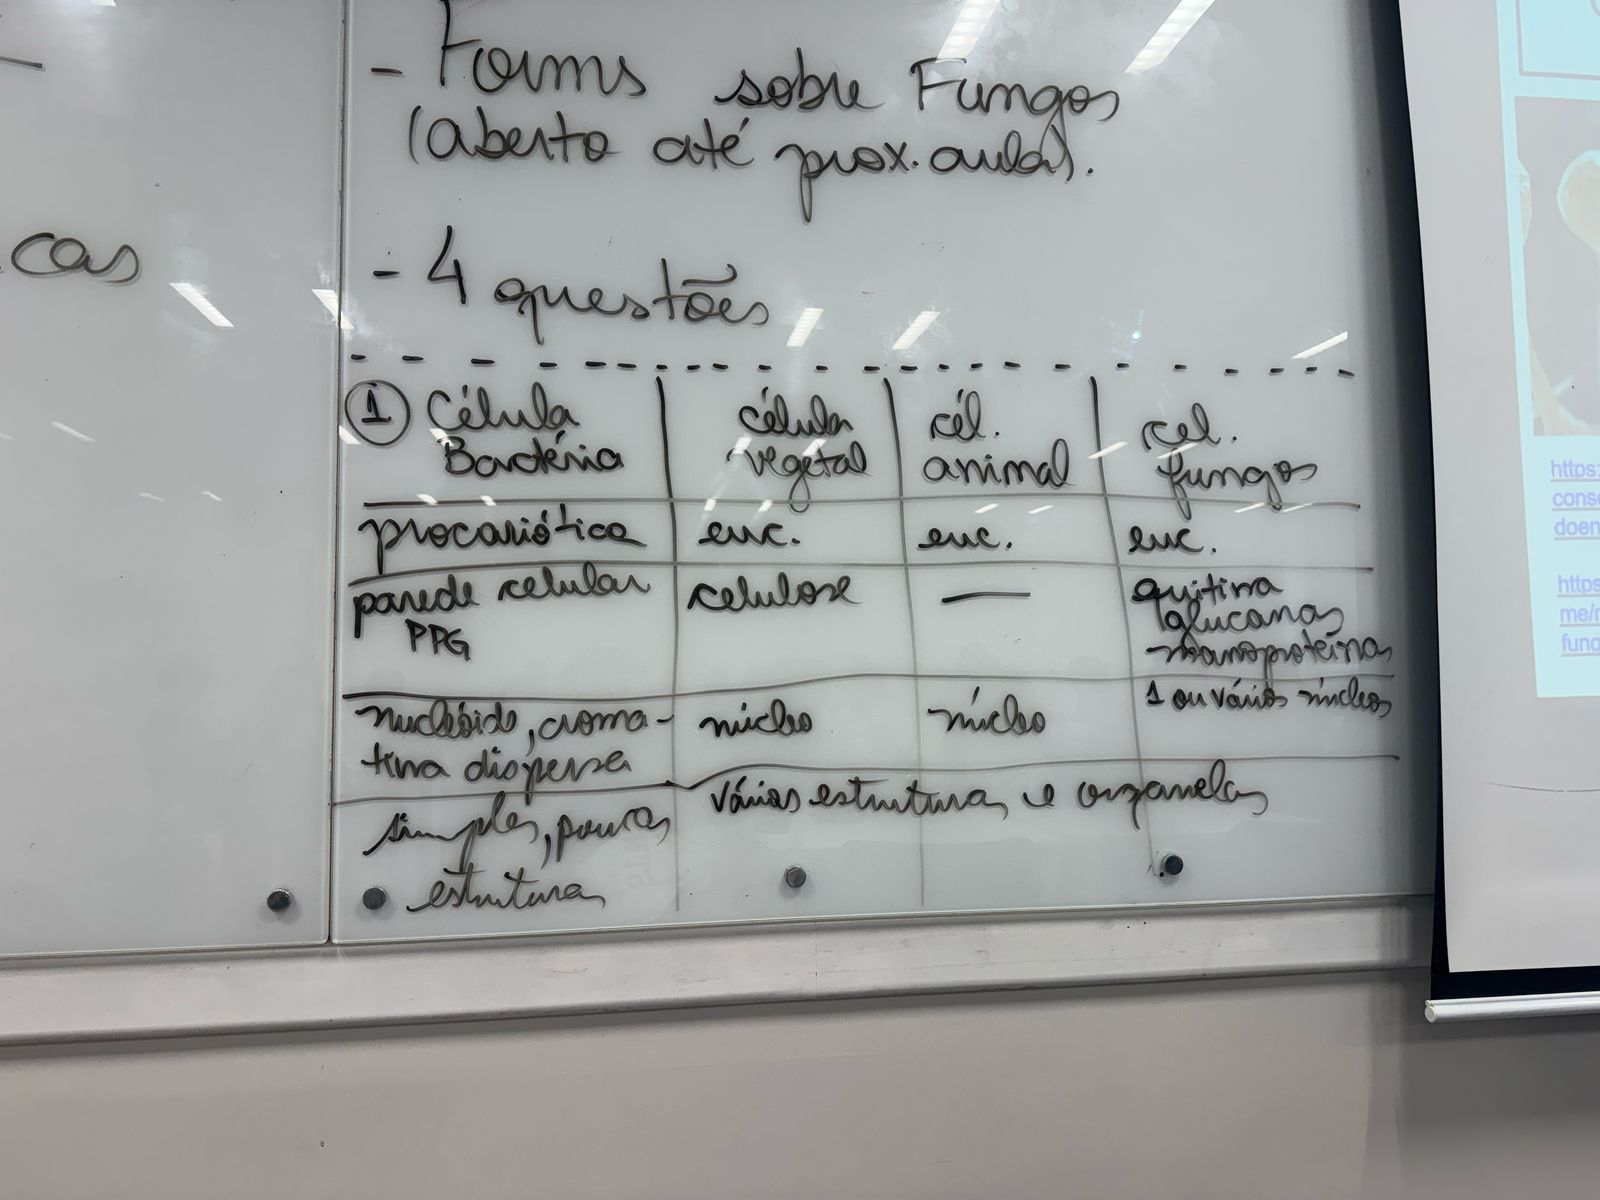 cas
- Forms sobre Fungos
(aberto até prox. aula).
- 4 questões
① Célula Bactéria | célula vegetal | cél. animal | cel. fungos
procariótica | euc. | euc. | euc.
parede celular PPG | celulose | — | quitina glucanas manoproteínas
nucleóide, croma-tina dispersa | núcleo | núcleo | 1 ou vários núcleos
simples, poucas estruturas | várias estruturas e organelas
https:
cons
doen
https
me/r
fung